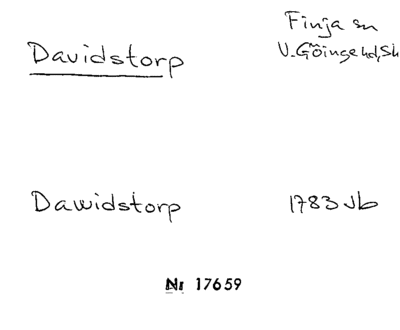 Davidstorp
Finja sn
V. Göinge hd, Sk
Dawidstorp
1783 Jb
Nr 17659